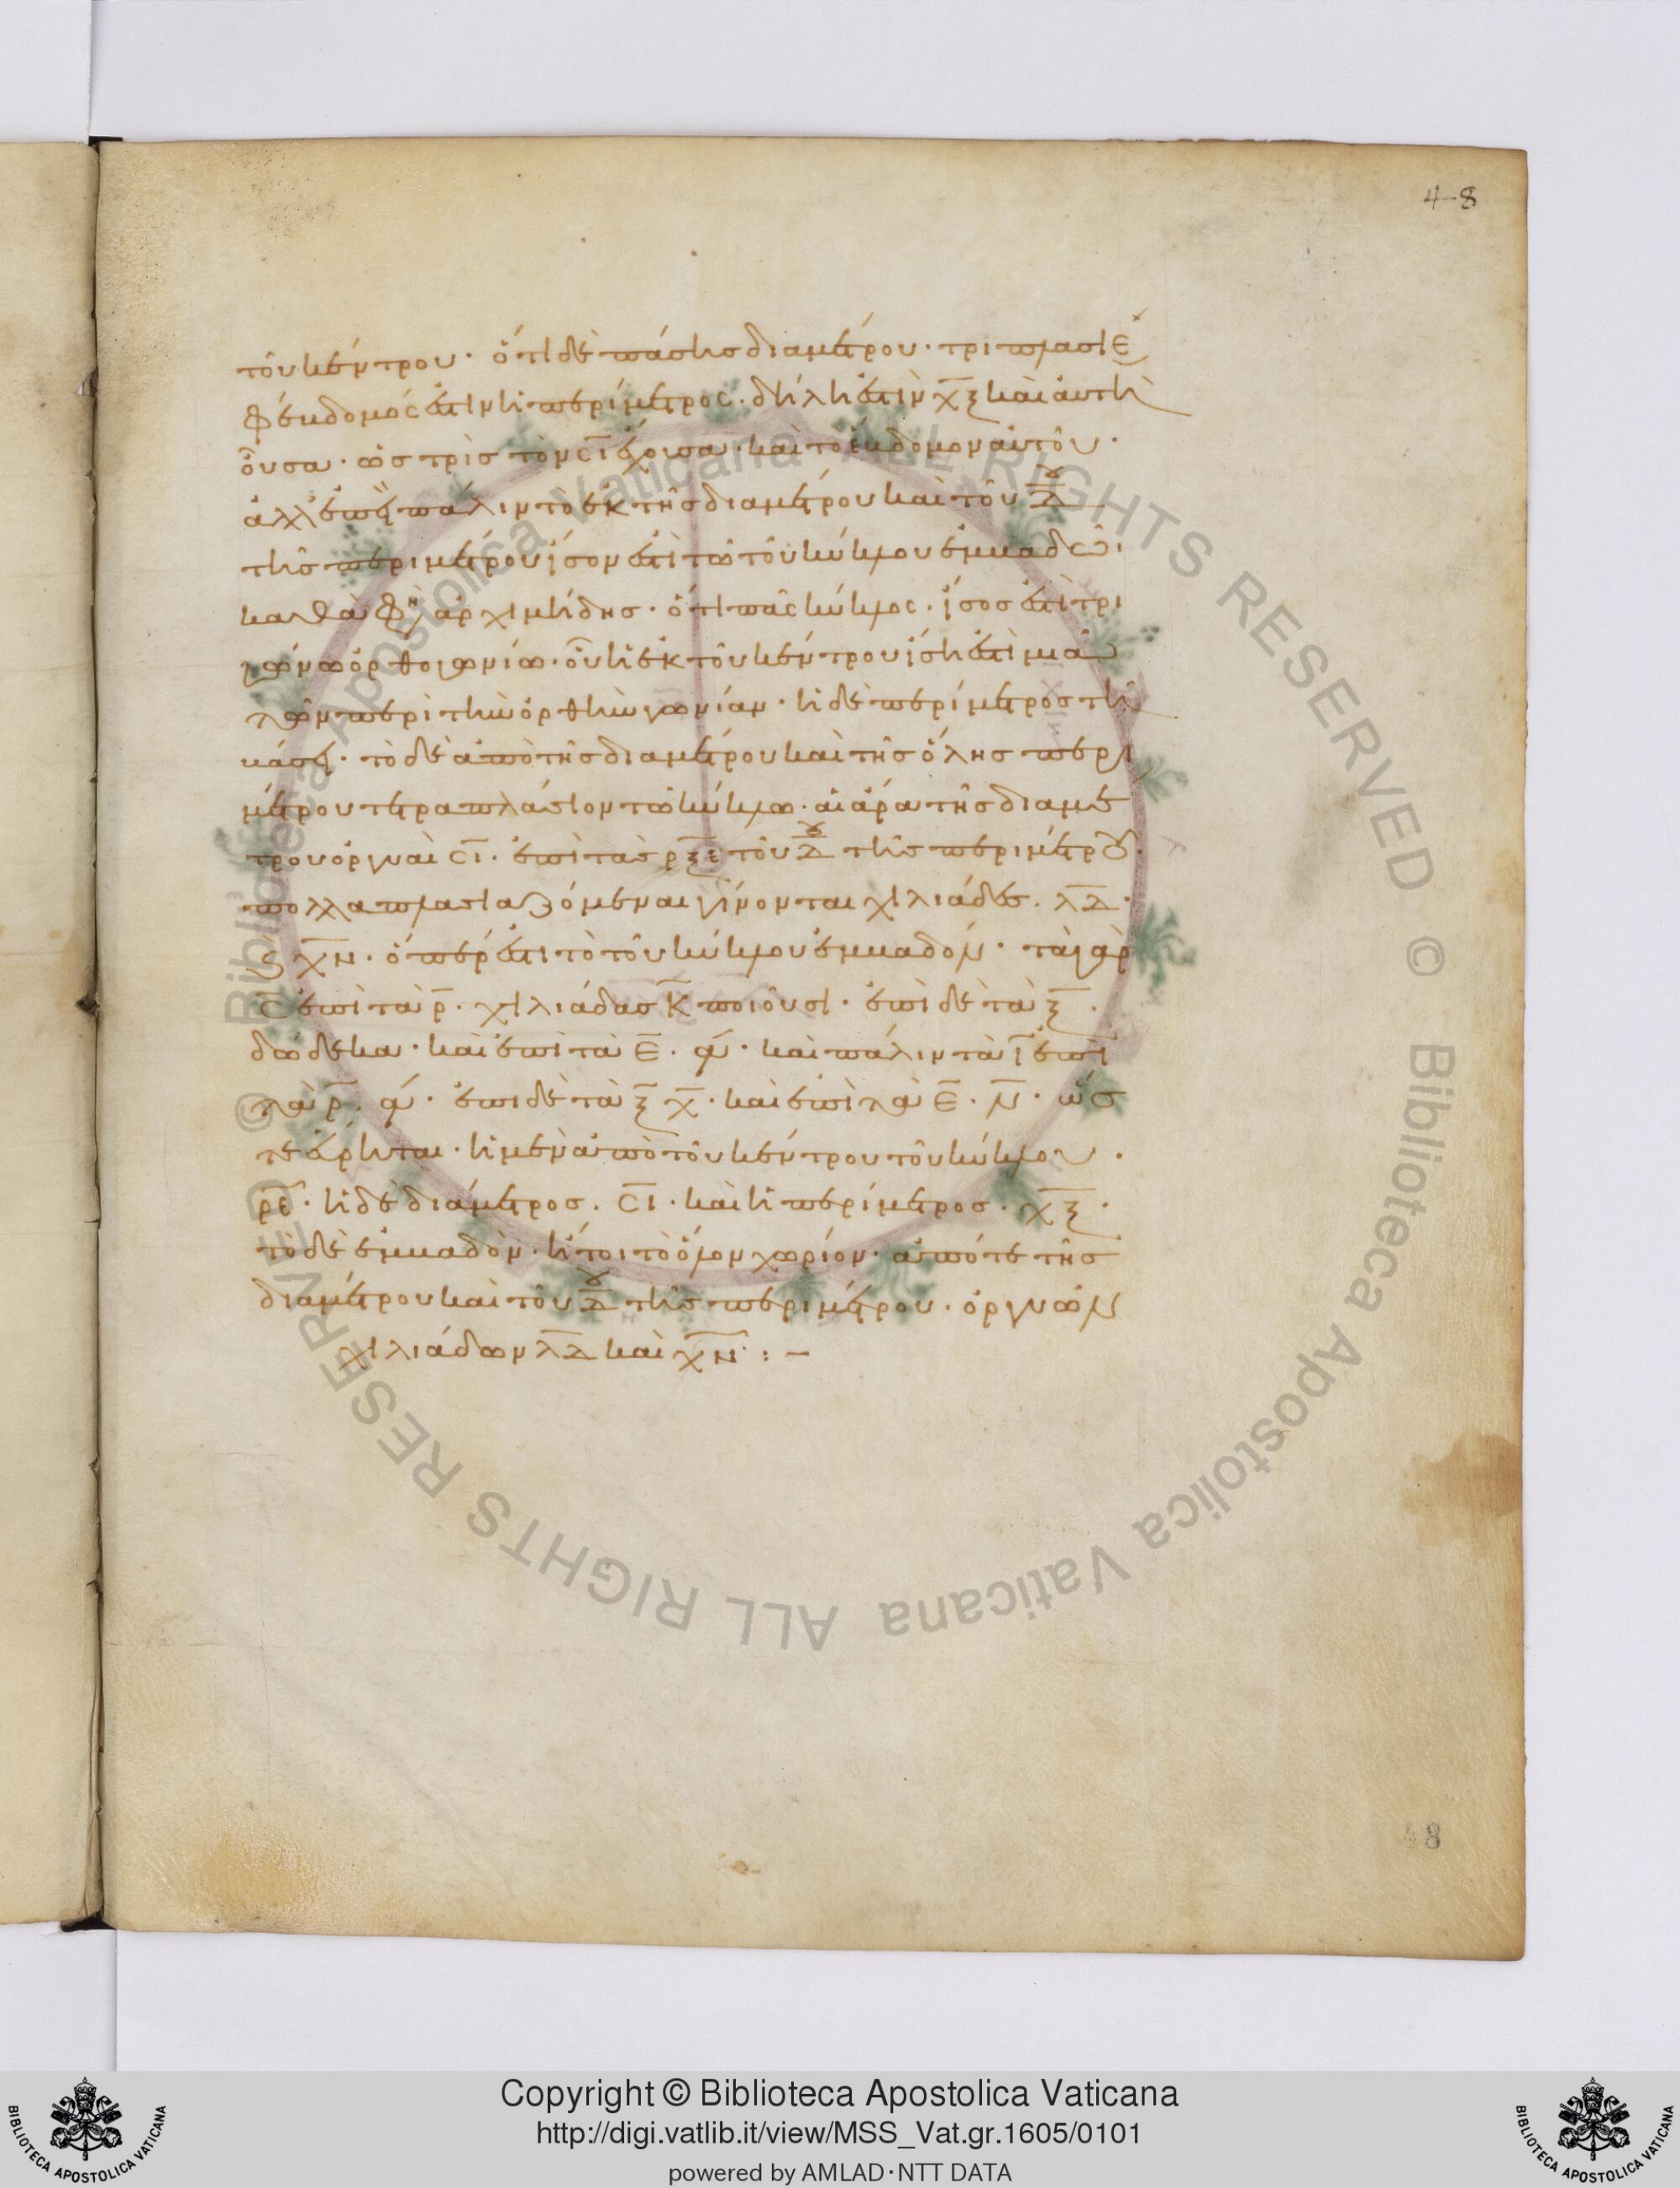 48
τοῦ κέντρου· ὅτι δὲ πάσης διαμέτρου· τριπλασιε
φέβδομός ἐστιν ἡ περίμετρος· δήλη ἐστὶν χ̅ξ̅ καὶ αὐτὴ
οὖσα· ὡς τρὶς τὸν σ̅ι̅ ἔχουσα· καὶ τὸ ἕβδομον αὐτοῦ·
ἀλλ' ἐπεὶ πάλιν τὸ ἐκ τῆς διαμέτρου καὶ τοῦ δ̅
τῆς περιμέτρου ἴσον ἐστὶ τῶ τοῦ κύκλου ἐμβαδῶι
καθά φη ἀρχιμήδης· ὅτι πᾶς κύκλος· ἴσος ἐστὶ τρι
γώνω ὀρθογωνίω· οὗ ἡ ἐκ τοῦ κέντρου ἴση ἐστὶ μιᾶ
τῶν περὶ τὴν ὀρθὴν γωνίαν· ἡ δὲ περίμετρος τῆ
βάσει· τὸ δὲ ἀπὸ τῆς διαμέτρου καὶ τῆς ὅλης περι
μέτρου τετραπλάσιον τῶ κύκλω· αἱ ἄρα τῆς διαμέ
τρου ὀργυαὶ σ̅ι̅· ἐπὶ τὰς ρ̅ξ̅ε̅ τοῦ δ̅ τῆς περιμέτρου·
πολλαπλασιαζόμεναι γίνονται χιλιάδες· λ̅δ̅·
ς χ̅ν̅· ὅπερ ἐστὶ τὸ τοῦ κύκλου ἐμβαδόν· τὰ γὰρ
σ̅ ἐπὶ τὰ ρ̅· χιλιάδας κ̅ ποιοῦσι· ἐπὶ δὲ τὰ ξ̅·
δώδεκα· καὶ ἐπὶ τὰ ε̅· α· καὶ πάλιν τὰ ι̅ ἐπὶ
τὰ ρ̅· α· ἐπὶ δὲ τὰ ξ̅ χ̅· καὶ ἐπὶ τὰ ε̅· ν̅· ὥσ
τε εἴρηται· ἡ μὲν ἀπὸ τοῦ κέντρου τοῦ κύκλου·
ρ̅ε̅· ἡ δὲ διάμετρος· σ̅ι̅· καὶ ἡ περίμετρος· χ̅ξ̅·
τὸ δὲ ἐμβαδὸν· ἤτοι τὸ ὅλον χωρίον· ἀπό τε τῆς
διαμέτρου καὶ τοῦ δ̅ τῆς περιμέτρου· ὀργυῶν
χιλιάδων λ̅δ̅ καὶ χ̅ν̅ : –
48
© Biblioteca Apostolica Vaticana ALL RIGHTS RESERVED © Biblioteca Apostolica Vaticana ALL RIGHTS RESERVED
Copyright © Biblioteca Apostolica Vaticana
http://digi.vatlib.it/view/MSS_Vat.gr.1605/0101
powered by AMLAD·NTT DATA
BIBLIOTECA APOSTOLICA VATICANA
BIBLIOTECA APOSTOLICA VATICANA